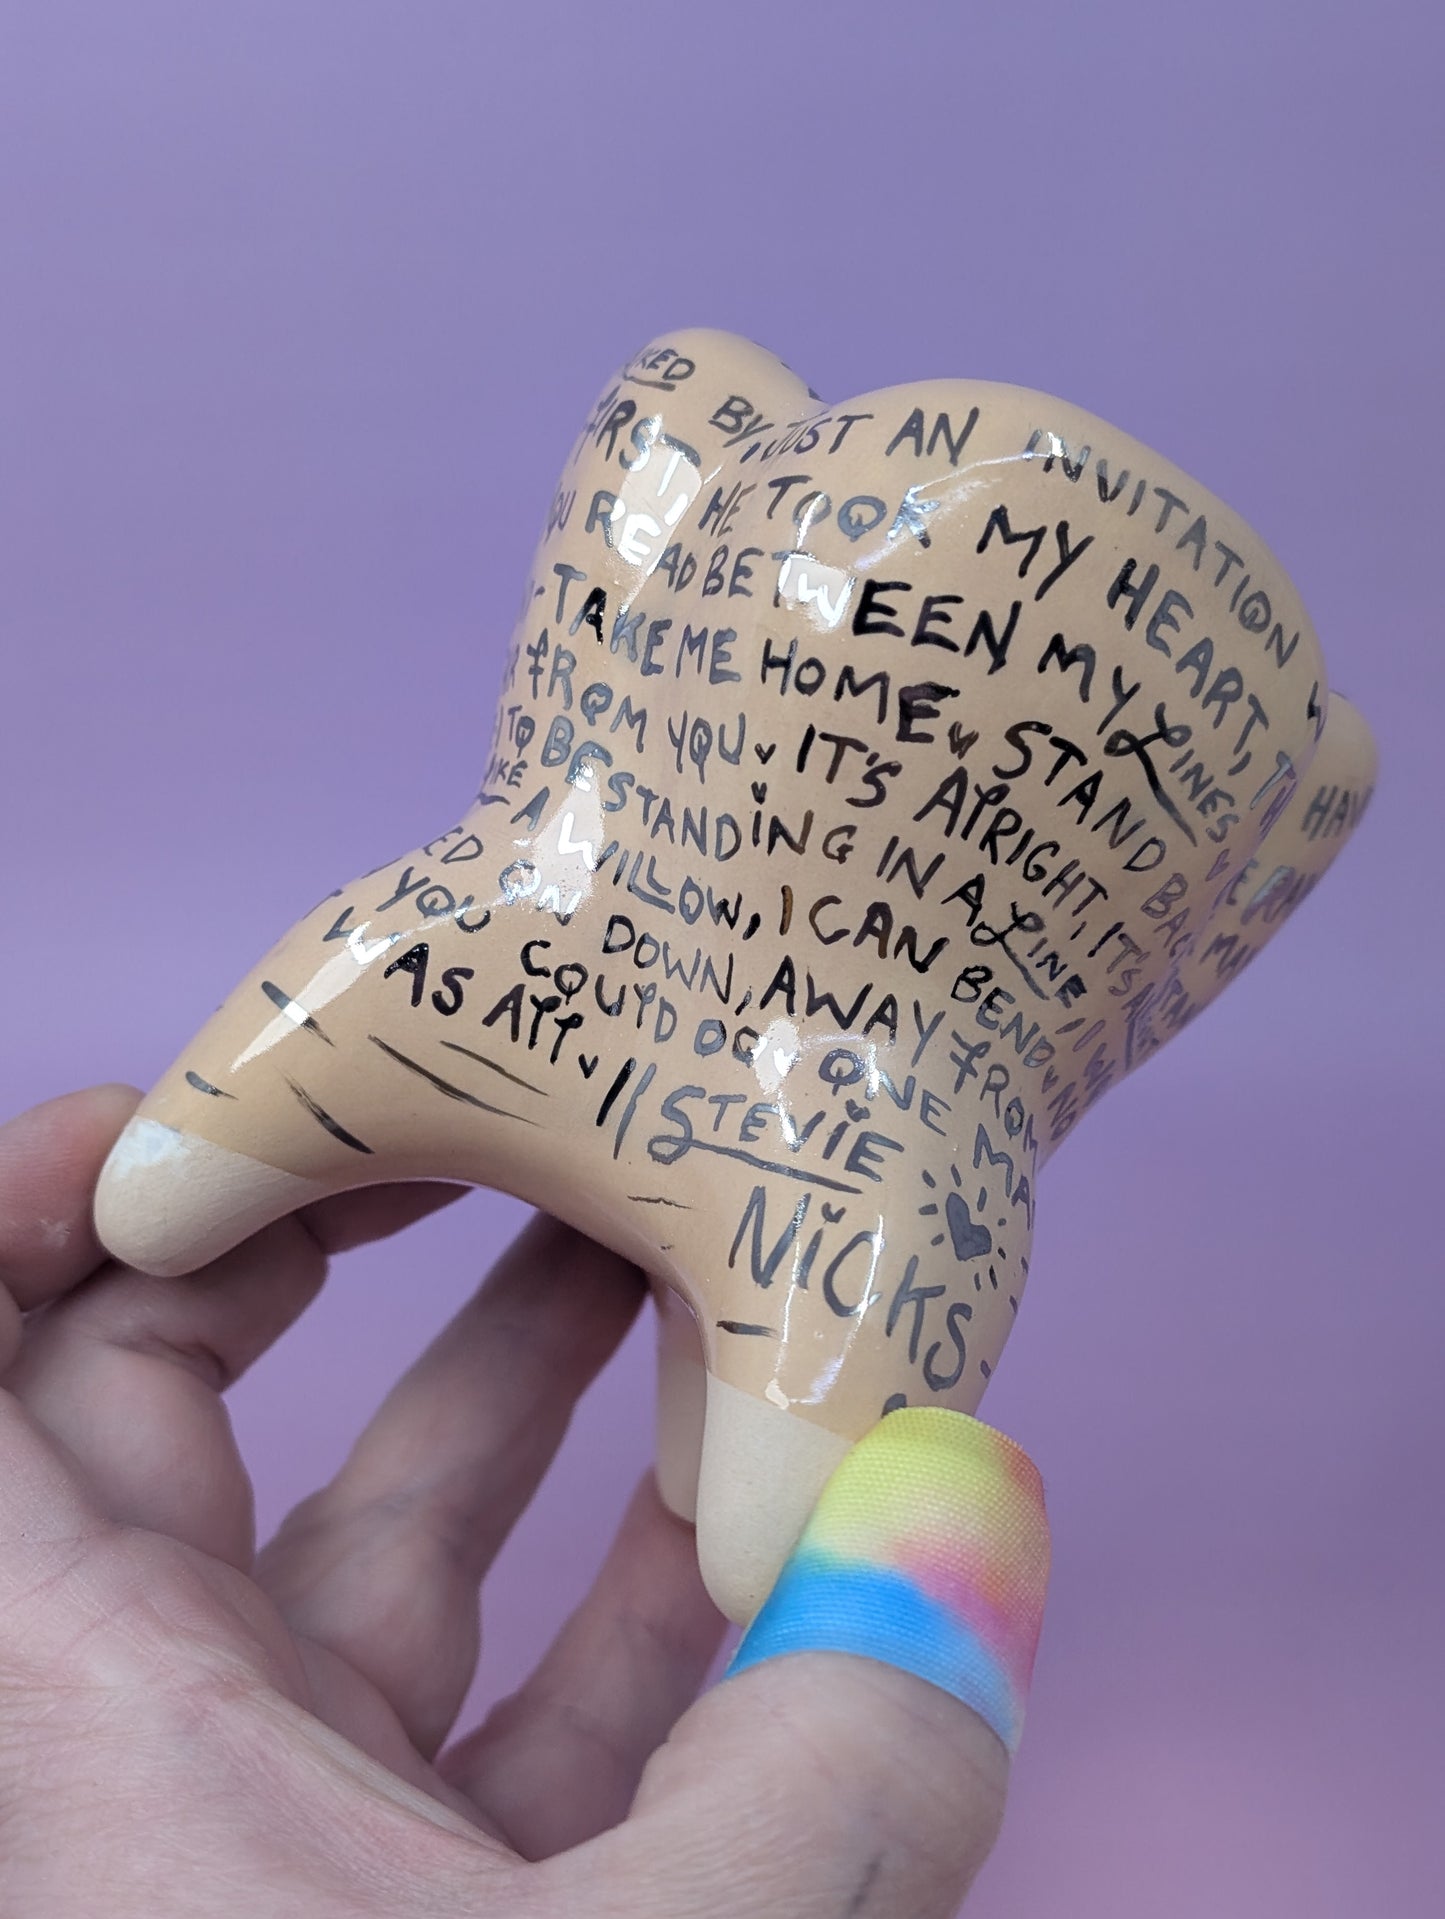 BY, JUST AN INVITATION
FIRST, HE TOOK MY HEART, TH
YOU READ BETWEEN MY LINES
TAKE ME HOME STAND BAC
FROM YOU IT'S ALRIGHT, IT'S ALRIGHT
TO BE STANDING IN A LINE, I WO
LIKE A WILLOW, I CAN BEND NO
ED ON DOWN, AWAY FROM
YOU COULD DO ONE MA
WAS ALL //STEVIE
NICKS
HAV
MAN